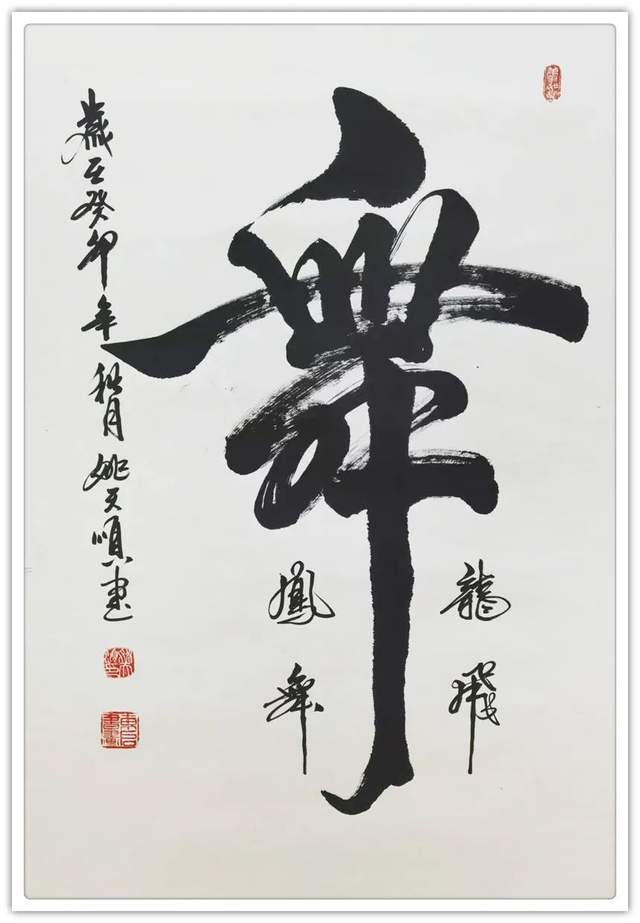 舞
龍飛
鳳舞
歲在癸卯年秋月姚天順書